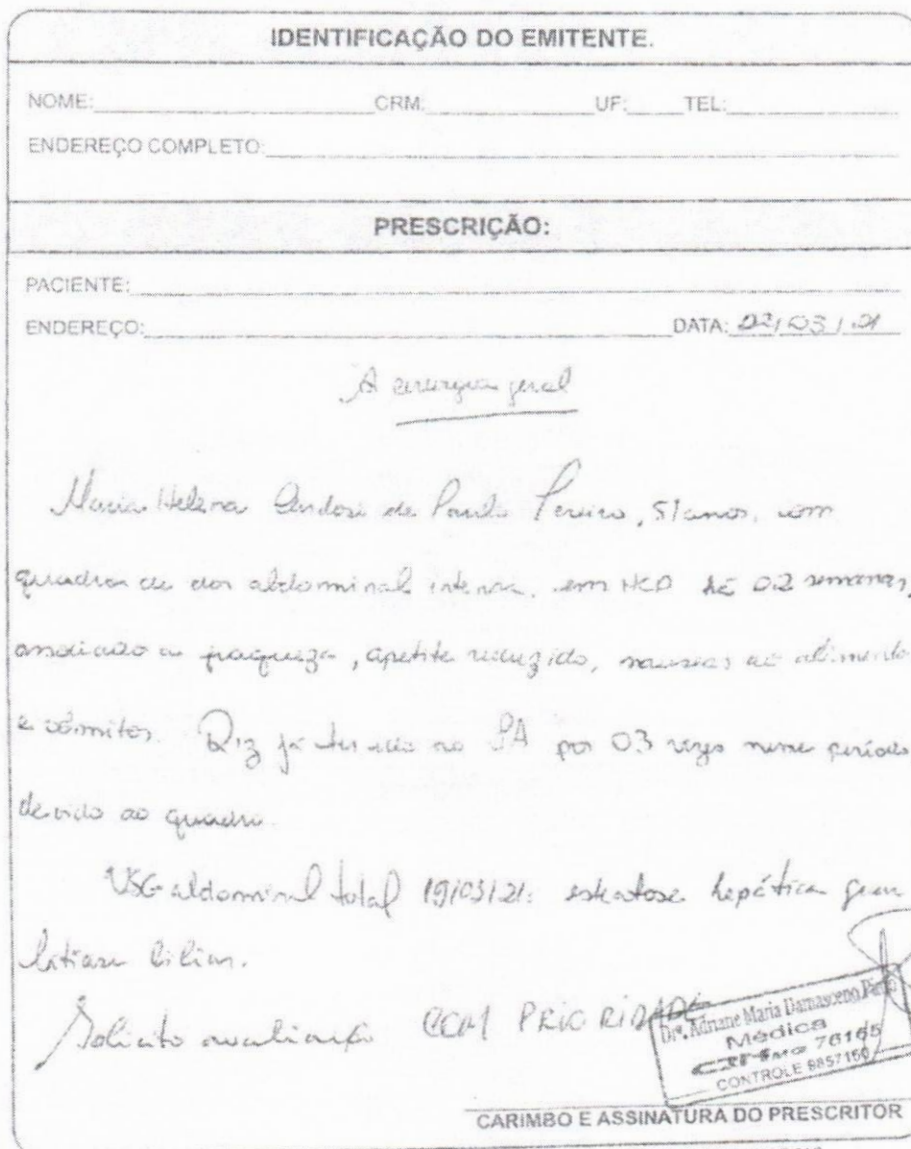 IDENTIFICAÇÃO DO EMITENTE.
NOME: CRM: UF: TEL:
ENDEREÇO COMPLETO:
PRESCRIÇÃO:
PACIENTE:
ENDEREÇO: DATA: /03/21
A cirurgia geral
Maria Helena de Paula Pereira, 51 anos, com
quadro de dor abdominal intensa, em HCD há 02 semanas,
associado a fraqueza, apetite reduzido, nauseas ao alimentar
e vômitos. Diz já ter ido no PA por 03 vezes nesse período
devido ao quadro.
USG abdominal total 19/03/21: esteatose hepática
litiase biliar.
Solicito avaliação COM PRIORIDADE
Drª. Adriane Maria Damasceno
Médica
76165
CONTROLE 8857160
CARIMBO E ASSINATURA DO PRESCRITOR